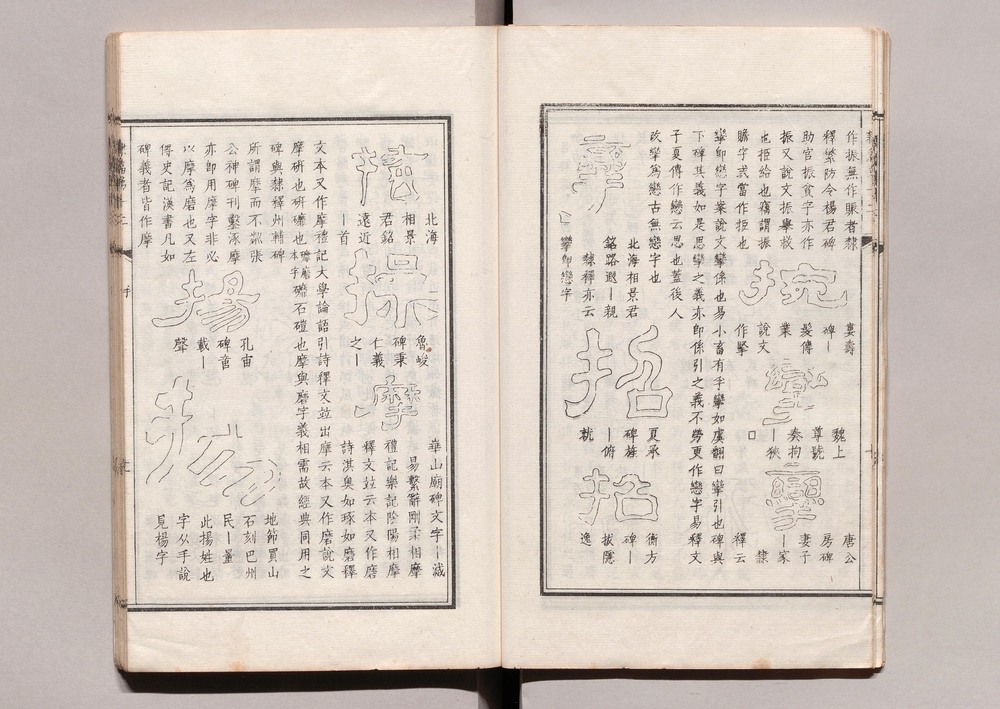 作振無作賑者隸
釋繁防令楊君碑
助宫振貧字亦作
振又說文振舉救
也拒給也竊謂振
賑字式當作拒也
婁壽
碑丨
髮傳
業
說文
作掔
魏上
尊號
奏拘
丨狹
唐公
房碑
妻子
丨家
隸
釋云
攣卽戀字案說文攣係也易小畜有孚攣如虞翻曰攣引也碑與
下碑其義如是思攣之義亦卽係引之義不勞更作戀字易釋文
子夏傳作戀云思也蓋後人
改攣爲戀古無戀字也
攣
北海相景君
銘路遐丨親
隸釋亦云
攣卽戀字
招
夏承
碑旌
丨俯
就
招
衡方
碑丨
拔隱
逸
北海
相景
君銘
遠近
丨首
操
魯峻
碑秉
仁義
之丨
摩
華山廟碑文字丨滅
易繫辭剛柔相摩
禮記樂記陰陽相摩
釋文竝云本又作磨
詩淇奧如琢如磨釋
文本又作摩禮記大學論語引詩釋文竝出摩云本又作磨說文
摩硏也硏䃺也本字䃺磨䃺石磑也摩與磨字義相需故經典同用之
碑與隸釋州輔碑
所謂摩而不𣧑張
公神碑刊鑿涿摩
亦卽用摩字非必
以摩爲磨也又左
傳史記漢書凡如
碑義者皆作摩
揚
孔宙
碑㑹
載丨
聲
地節買山
石刻巴州
民丨量
此揚姓也
字从手說
見楊字